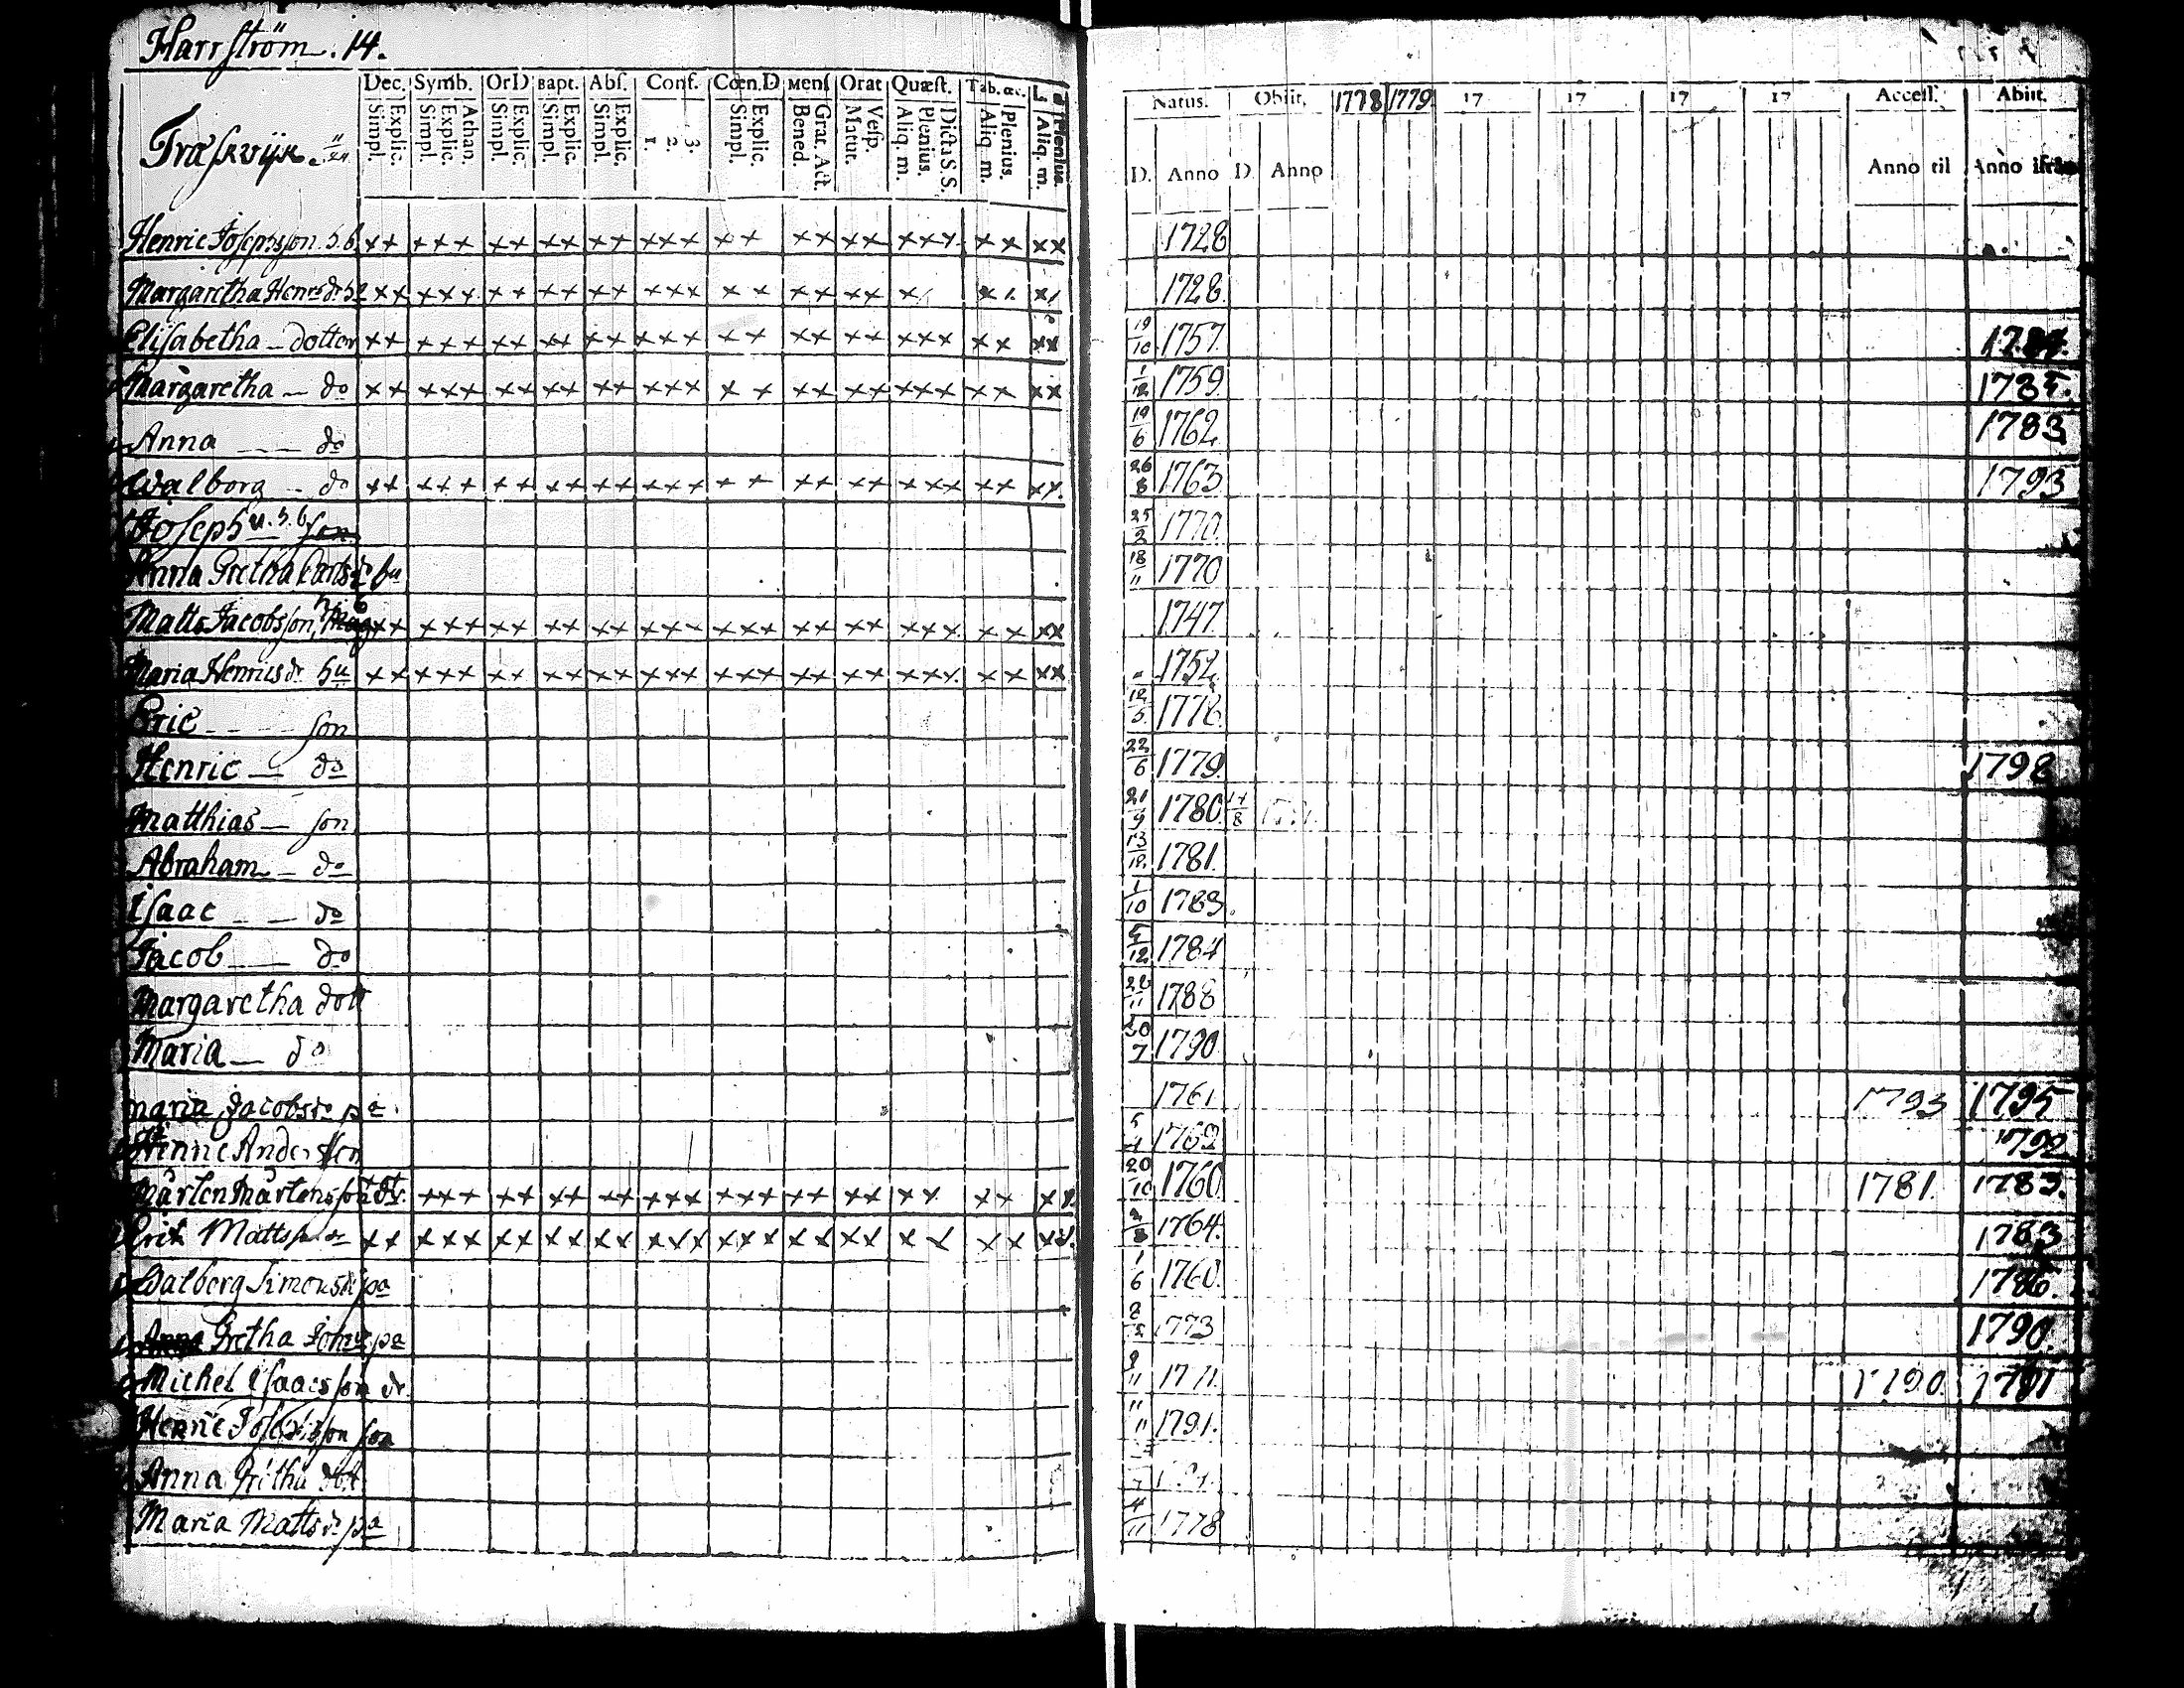 Harrström. 14.
Dec. Symb. OrD Bapt. Abſ. Conf. Cœn.D Menſ Orat Quæſt. Tab.œc. Natus. Obiit. 1778 1779 17 17 17 17 Acceſſ. Abiit.
Explic. Simpl. Athan. Explic. Simpl. Explic. Simpl. Explic. Simpl. Explic. Simpl. 3. 2. 1. Explic. Simpl. Grat. Act. Bened. Veſp. Matut. Dicta S.S. Plenius. Aliq. m. Plenius. Aliq. m. Plenius. Aliq. m. D. Anno D. Anno Anno til Anno
Træskvijk
Henric Josephsson. h.b. ×× ××× ×× ×× ×× ××× ×× ×× ×× ××× ×× ×× 1728
Margaretha Henrsdr ×× ××× ×× ×× ×× ××× ×× ×× ×× × 1728.
Elisabetha — dotter ×× ××× ×× ×× ×× ××× ×× ×× ×× ××× ×× ×× 19/10 1757.
Margaretha — do ×× ××× ×× ×× ×× ××× ×× ×× ×× ××× ×× ×× 1/12 1759. 1785.
Anna — do 19/6 1762 1783
Walborg — do ×× ××× ×× ×× ×× ××× ×× ×× ×× ××× ×× ×× 26/8 1763 1793
Joseph son 25/2 1770.
Anna Gretha 18/11 1770
Matts Jacobsson ×× ××× ×× ×× ×× ××× ××× ×× ×× ××× ×× ×× 1747.
Maria Henricsdr hu ×× ××× ×× ×× ×× ××× ××× ×× ×× ××× ×× ×× 1752
Eric — son 1778
Henric — do 22/6 1779. 1798
Matthias — son 21/9 1780 14/8
Abraham — do 13/12 1781.
Isaac — do 1/10 1783.
Jacob — do 5/12 1784
Margaretha dott 1788
Maria — do 30/7 1790
Maria Jacobsdr pa 1761 1793 1795
Henric Andersson 5/4 1762 1792
Mårten Mårtensson dr. ××× ×× ×× ×× ××× ××× ×× ×× ×× ×× 20/10 1760 1781. 1783.
Erik Mattsson ×× ××× ×× ×× ×× ××× ××× ×× ×× ×× ×× 1764. 1783
Walborg Simonsdr pa 1/6 1760. 1786.
Gretha pa 1773 1790.
Michel Isaacsson dr. 9/11 1790 1791
Henric Josephsson son 11/11 1791.
Anna Gretha dott
Maria Mattsdr pa 4/11 1778